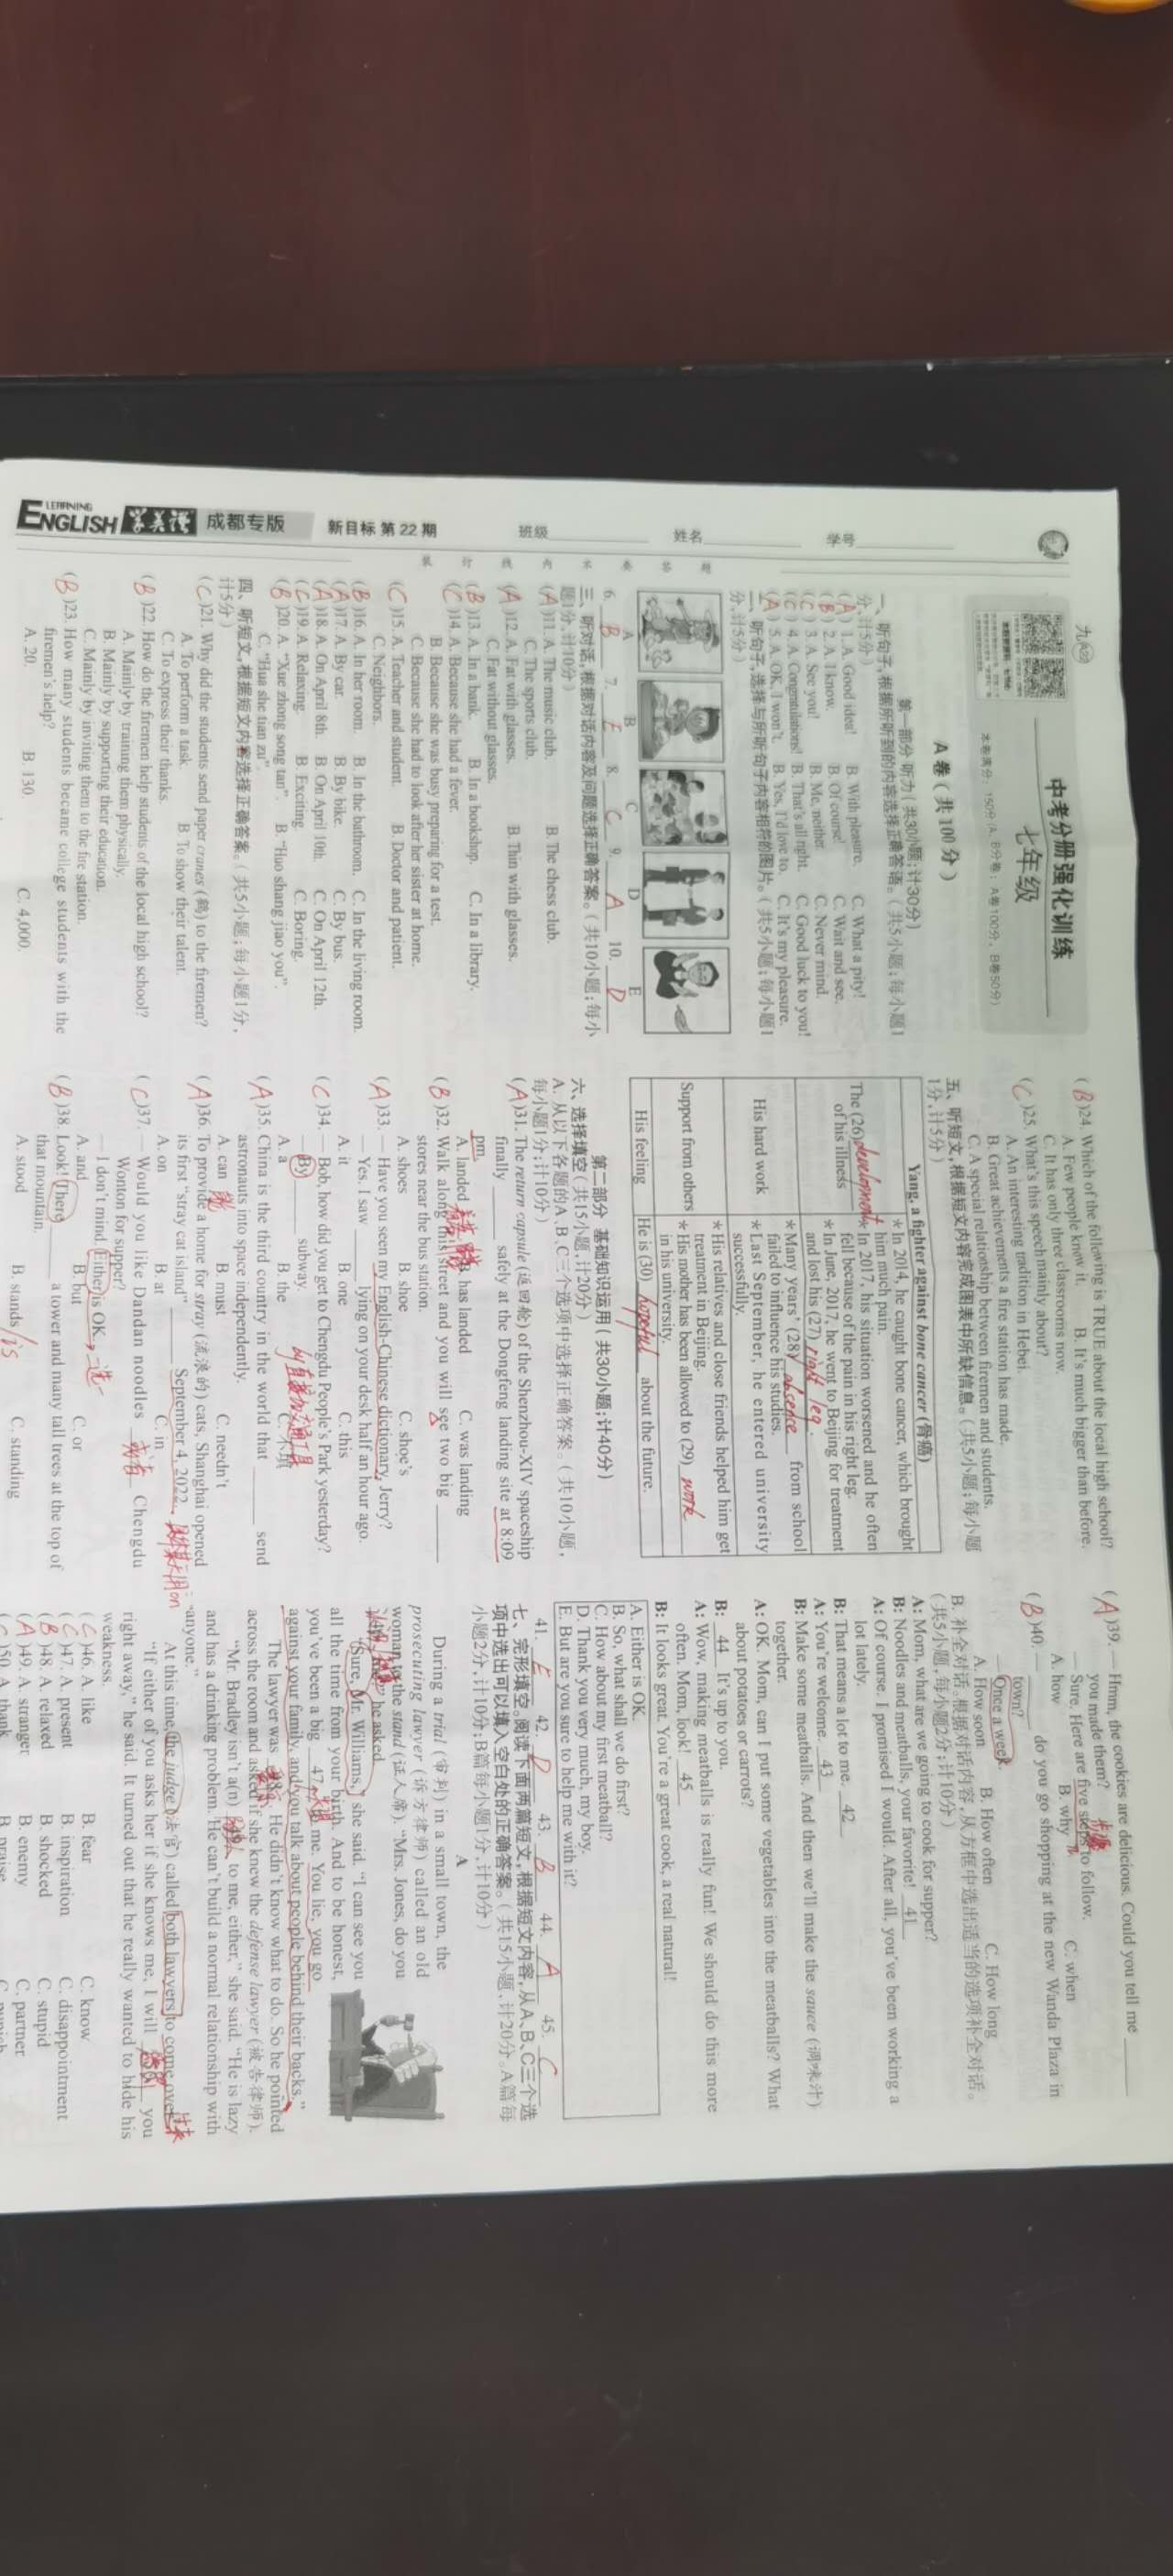 LEARNING
ENGLISH 学英语 成都专版 新目标 第22期 班级 姓名 学号
装 订 线 内 不 要 答 题
中考分册强化训练
七年级
本卷满分：150分（A、B分卷：A卷100分，B卷50分）
A 卷（共 100 分）
第一部分 听力（共30小题；计30分）
一、听句子，根据所听到的内容选择正确答语。（共5小题；每小题1
分，计5分）
(A) 1. A. Good idea! B. With pleasure. C. What a pity!
(B) 2. A. I know. B. Of course! C. Wait and see.
(C) 3. A. See you! B. Me, neither. C. Never mind.
(C) 4. A. Congratulations! B. That's all right. C. Good luck to you!
(A) 5. A. OK, I won't. B. Yes, I'd love to. C. It's my pleasure.
二、听句子，选择与所听句子内容相符的图片。（共5小题；每小题1
分，计5分）
A B C D E
6. B 7. E 8. C 9. A 10. D
三、听对话，根据对话内容及问题选择正确答案。（共10小题；每小
题1分，计10分）
(A)11. A. The music club. B. The chess club.
C. The sports club.
(A)12. A. Fat with glasses. B. Thin with glasses.
C. Fat without glasses.
(B)13. A. In a bank. B. In a bookshop. C. In a library.
(C)14. A. Because she had a fever.
B. Because she was busy preparing for a test.
C. Because she had to look after her sister at home.
(C)15. A. Teacher and student. B. Doctor and patient.
C. Neighbors.
(B)16. A. In her room. B. In the bathroom. C. In the living room.
(A)17. A. By car. B. By bike. C. By bus.
(A)18. A. On April 8th. B. On April 10th. C. On April 12th.
(C)19. A. Relaxing. B. Exciting. C. Boring.
(B)20. A. “Xue zhong song tan”. B. “Huo shang jiao you”.
C. “Hua she tian zu”.
四、听短文，根据短文内容选择正确答案。（共5小题；每小题1分，
计5分）
(C)21. Why did the students send paper cranes (鹤) to the firemen?
A. To perform a task. B. To show their talent.
C. To express their thanks.
(B)22. How do the firemen help students of the local high school?
A. Mainly by training them physically.
B. Mainly by supporting their education.
C. Mainly by inviting them to the fire station.
(B)23. How many students became college students with the
firemen's help?
A. 20. B. 130. C. 4,000.
(B)24. Which of the following is TRUE about the local high school?
A. Few people know it. B. It's much bigger than before.
C. It has only three classrooms now.
(C)25. What's this speech mainly about?
A. An interesting tradition in Hebei.
B. Great achievements a fire station has made.
C. A special relationship between firemen and students.
五、听短文，根据短文内容完成图表中所缺信息。（共5小题；每小题
1分，计5分）
Yang, a fighter against bone cancer (骨癌)
The (26) development of his illness
* In 2014, he caught bone cancer, which brought
him much pain.
* In 2017, his situation worsened and he often
fell because of the pain in his right leg.
* In June, 2017, he went to Beijing for treatment
and lost his (27) right leg.
His hard work
* Many years' (28) absence from school
failed to influence his studies.
* Last September, he entered university
successfully.
Support from others
* His relatives and close friends helped him get
treatment in Beijing.
* His mother has been allowed to (29) work
in his university.
His feeling He is (30) hopeful about the future.
第二部分 基础知识运用（共30小题；计40分）
六、选择填空（共15小题，计20分）
A. 从以下各题的A、B、C三个选项中选择正确答案。（共10小题，
每小题1分；计10分）
(A)31. The return capsule (返回舱) of the Shenzhou-XIV spaceship
finally ____ safely at the Dongfeng landing site at 8:09
pm.
A. landed B. has landed C. was landing
(B)32. Walk along this street and you will see two big ____
stores near the bus station.
A. shoes B. shoe C. shoe's
(A)33. — Have you seen my English-Chinese dictionary, Jerry?
— Yes. I saw ____ lying on your desk half an hour ago.
A. it B. one C. this
(C)34. — Bob, how did you get to Chengdu People's Park yesterday?
— By ____ subway.
A. a B. the C. 不填
(A)35. China is the third country in the world that ____ send
astronauts into space independently.
A. can B. must C. needn't
(A)36. To provide a home for stray (流浪的) cats, Shanghai opened
its first “stray cat island” ____ September 4, 2022.
A. on B. at C. in
(C)37. — Would you like Dandan noodles ____ Chengdu
Wonton for supper?
— I don't mind. Either is OK.
A. and B. but C. or
(B)38. Look! There ____ a tower and many tall trees at the top of
that mountain.
A. stood B. stands C. standing
(A)39. — Hmm, the cookies are delicious. Could you tell me ____
you made them?
— Sure. Here are five steps to follow.
A. how B. why C. when
(B)40. — ____ do you go shopping at the new Wanda Plaza in
town?
— Once a week.
A. How soon B. How often C. How long
B. 补全对话：根据对话内容，从方框中选出适当的选项补全对话。
（共5小题，每小题2分；计10分）
A: Mom, what are we going to cook for supper?
B: Noodles and meatballs, your favorite! 41
A: Of course. I promised I would. After all, you've been working a
lot lately.
B: That means a lot to me. 42
A: You're welcome. 43
B: Make some meatballs. And then we'll make the sauce (调味汁)
together.
A: OK. Mom, can I put some vegetables into the meatballs? What
about potatoes or carrots?
B: 44 It's up to you.
A: Wow, making meatballs is really fun! We should do this more
often. Mom, look! 45
B: It looks great. You're a great cook, a real natural!
A. Either is OK.
B. So, what shall we do first?
C. How about my first meatball?
D. Thank you very much, my boy.
E. But are you sure to help me with it?
41. E 42. D 43. B 44. A 45. C
七、完形填空。阅读下面两篇短文，根据短文内容，从A、B、C三个选
项中选出可以填入空白处的正确答案。（共15小题，计20分。A篇每
小题2分，计10分；B篇每小题1分，计10分）
A
During a trial (审判) in a small town, the
prosecuting lawyer (诉方律师) called an old
woman to the stand (证人席). “Mrs. Jones, do you
me?” he asked.
“Sure, Mr. Williams,” she said. “I can see you
all the time from your birth. And to be honest,
you've been a big 47 to me. You lie, you go
against your family, and you talk about people behind their backs.”
The lawyer was . He didn't know what to do. So he pointed
across the room and asked if she knew the defense lawyer (被告律师).
“Mr. Bradley isn't a(n) to me, either,” she said. “He is lazy
and has a drinking problem. He can't build a normal relationship with
anyone.”
At this time, the judge (法官) called both lawyers to come over.
“If either of you asks her if she knows me, I will you
right away,” he said. It turned out that he really wanted to hide his
weakness.
(C)46. A. like B. fear C. know
(C)47. A. present B. inspiration C. disappointment
(B)48. A. relaxed B. shocked C. stupid
(A)49. A. stranger B. enemy C. partner
(C)50. A. thank B. praise C. punish